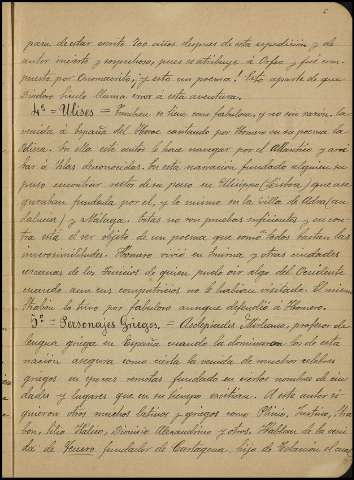 para de estar escrito 700 años despues de esta espedicion y de
autor incierto y sospechoso, pues se atribuye á Orfeo y fué com-
puesto por Onomacrito, y esta un poema. Esto aparte de que
Diodoro Siculo llama error á esta aventura.
4º = Ulises = Tambien se tiene como fabulosa, y no sin razon, la
venida á España del Heroe cantado por Homero en su poema la
Odisea. En ella este autor le hace navegar por el Atlantico y arri-
bar á Islas desconocidas. En esta narracion fundado alguien su-
puso encontrar restos de su paso en Ulisipo (Lisboa) que ase-
guraban fundada por el, y lo mismo en la villa de Adra (An-
dalucia) y Malaga. Estas no son pruebas suficientes y en con-
tra está el ser objeto de un poema que como todos hartan las
inverosimilitudes. Homero vivió en Smirna y otras ciudades
cercanas de los Fenicios de quien pudo oir algo del Occidente
cuando aun sus compatricios no le habian visitado. El mismo
Strabon lo tuvo por fabuloso aunque defendió á Homero.
5º = Personajes Griegos. = Asclepiades Mirleano, profesor de
lengua griega en España cuando la dominaron los de esta
nacion asegura como cierta la venida de muchos celebres
griegos en epocas remotas fundado en ciertos nombres de ciu-
dades y lugares que en su tiempo existian. A este autor si-
guieron otros muchos latinos y griegos como Plinio, Justino, Stra-
bon, Silio Italico, Dionisio Alexandrino y otros. Hablan de la veni-
da de Teucro fundador de Cartagena, hijo de Telamon el cual